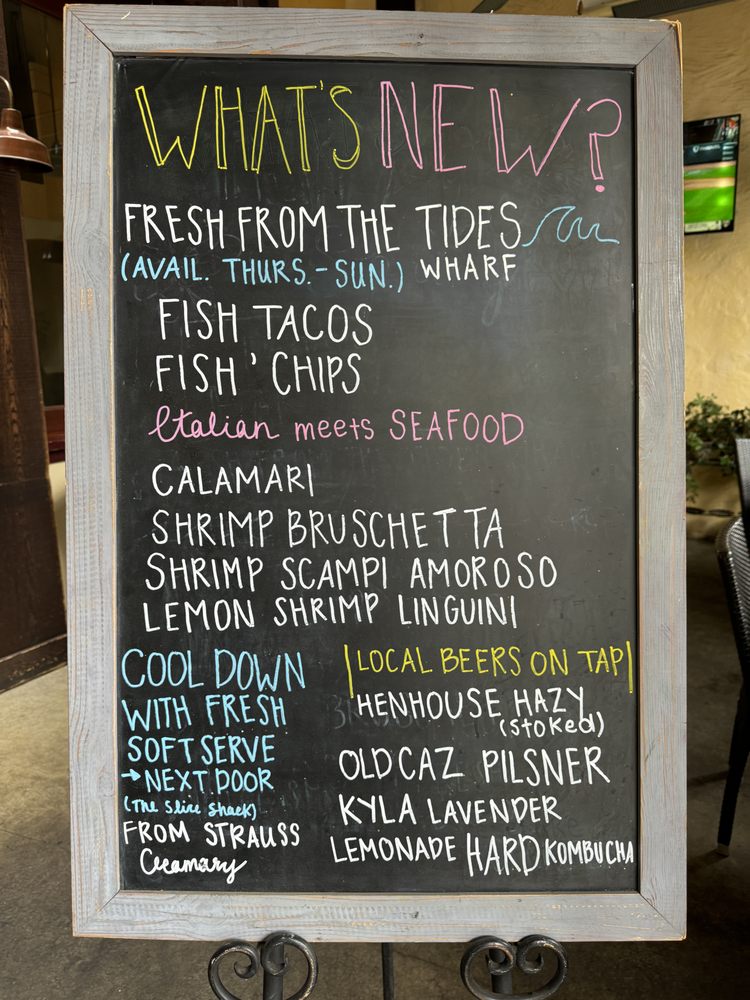 WHAT'S NEW?
FRESH FROM THE TIDES
(AVAIL. THURS.-SUN.) WHARF
FISH TACOS
FISH ' CHIPS
Italian meets SEAFOOD
CALAMARI
SHRIMP BRUSCHETTA
SHRIMP SCAMPI AMOROSO
LEMON SHRIMP LINGUINI
COOL DOWN
WITH FRESH
SOFT SERVE
→NEXT DOOR
(The Slice Shack)
FROM STRAUSS
Creamary
LOCAL BEERS ON TAP
HENHOUSE HAZY
(Stoked)
OLD CAZ PILSNER
KYLA LAVENDER
LEMONADE HARD KOMBUCHA